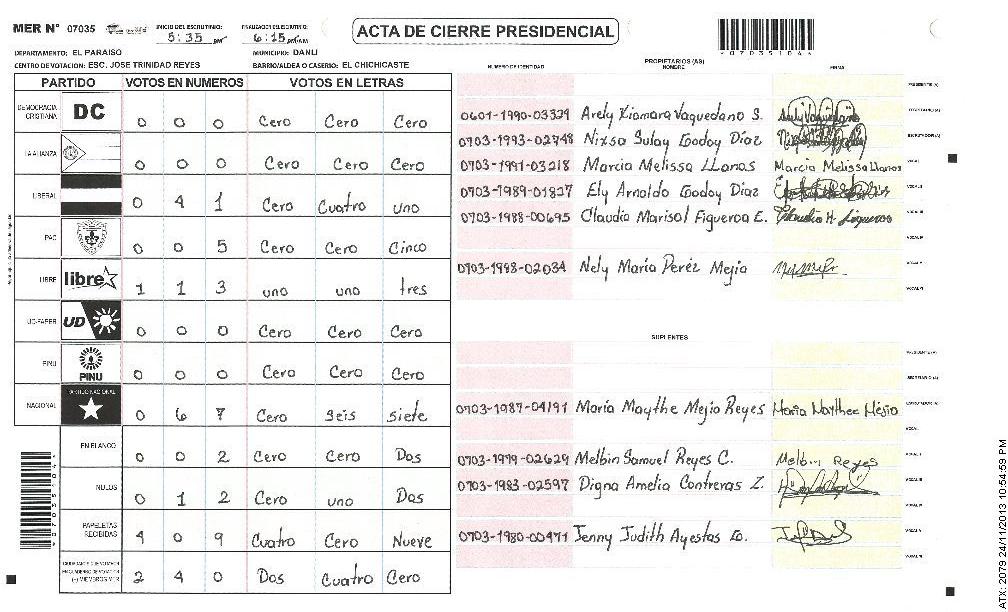 MER Nº 07035
INICIO DEL ESCRUTINIO: 5:35 pm
FINALIZACION DEL ESCRUTINIO: 6:15 pm/AM
ACTA DE CIERRE PRESIDENCIAL
DEPARTAMENTO: EL PARAISO MUNICIPIO: DANLI
CENTRO DE VOTACION: ESC. JOSE TRINIDAD REYES BARRIO/ALDEA O CASERIO: EL CHICHICASTE
PARTIDO VOTOS EN NUMEROS VOTOS EN LETRAS
DEMOCRACIA CRISTIANA DC 0 0 0 Cero Cero Cero
LA ALIANZA 0 0 0 Cero Cero Cero
LIBERAL 0 4 1 Cero Cuatro uno
PAC 0 0 5 Cero Cero Cinco
LIBRE libre 1 1 3 uno uno tres
UD-FAPER UD 0 0 0 Cero Cero Cero
PINU PINU 0 0 0 Cero Cero Cero
NACIONAL PARTIDO NACIONAL 0 6 7 Cero Seis siete
EN BLANCO 0 0 2 Cero Cero Dos
NULOS 0 1 2 Cero uno Dos
PAPELETAS RECIBIDAS 4 0 9 Cuatro Cero Nueve
2 4 0 Dos Cuatro Cero
NUMERO DE IDENTIDAD PROPIETARIOS (AS) NOMBRE FIRMA
PRESIDENTE (A)
0601-1990-03329 Arely Xiomara Vaquedano S. SECRETARIO (A)
0703-1993-02748 Nixsa Sulay Godoy Díaz ESCRUTADOR (A)
0703-1991-03218 Marcia Melissa Llanos Marcia Melissa Llanos VOCAL I
0703-1989-01827 Ely Arnoldo Godoy Díaz VOCAL II
0703-1988-00695 Claudia Marisol Figueroa E. Claudia M. Figueroa VOCAL III
VOCAL IV
0703-1998-02034 Nely María Peréz Mejia VOCAL V
VOCAL VI
SUPLENTES
PRESIDENTE (A)
SECRETARIO (A)
0703-1987-04191 María Maythe Mejia Reyes Maria Maythee Mejia ESCRUTADOR (A)
VOCAL I
0703-1979-02629 Melbin Samuel Reyes C. Melbin Reyes VOCAL II
0703-1983-02597 Digna Amelia Contreras Z. VOCAL III
VOCAL IV
0703-1980-00471 Jenny Judith Ayestas G. VOCAL V
VOCAL VI
*0703510 4*
ATX: 2079 24/11/2013 10:54:59 PM